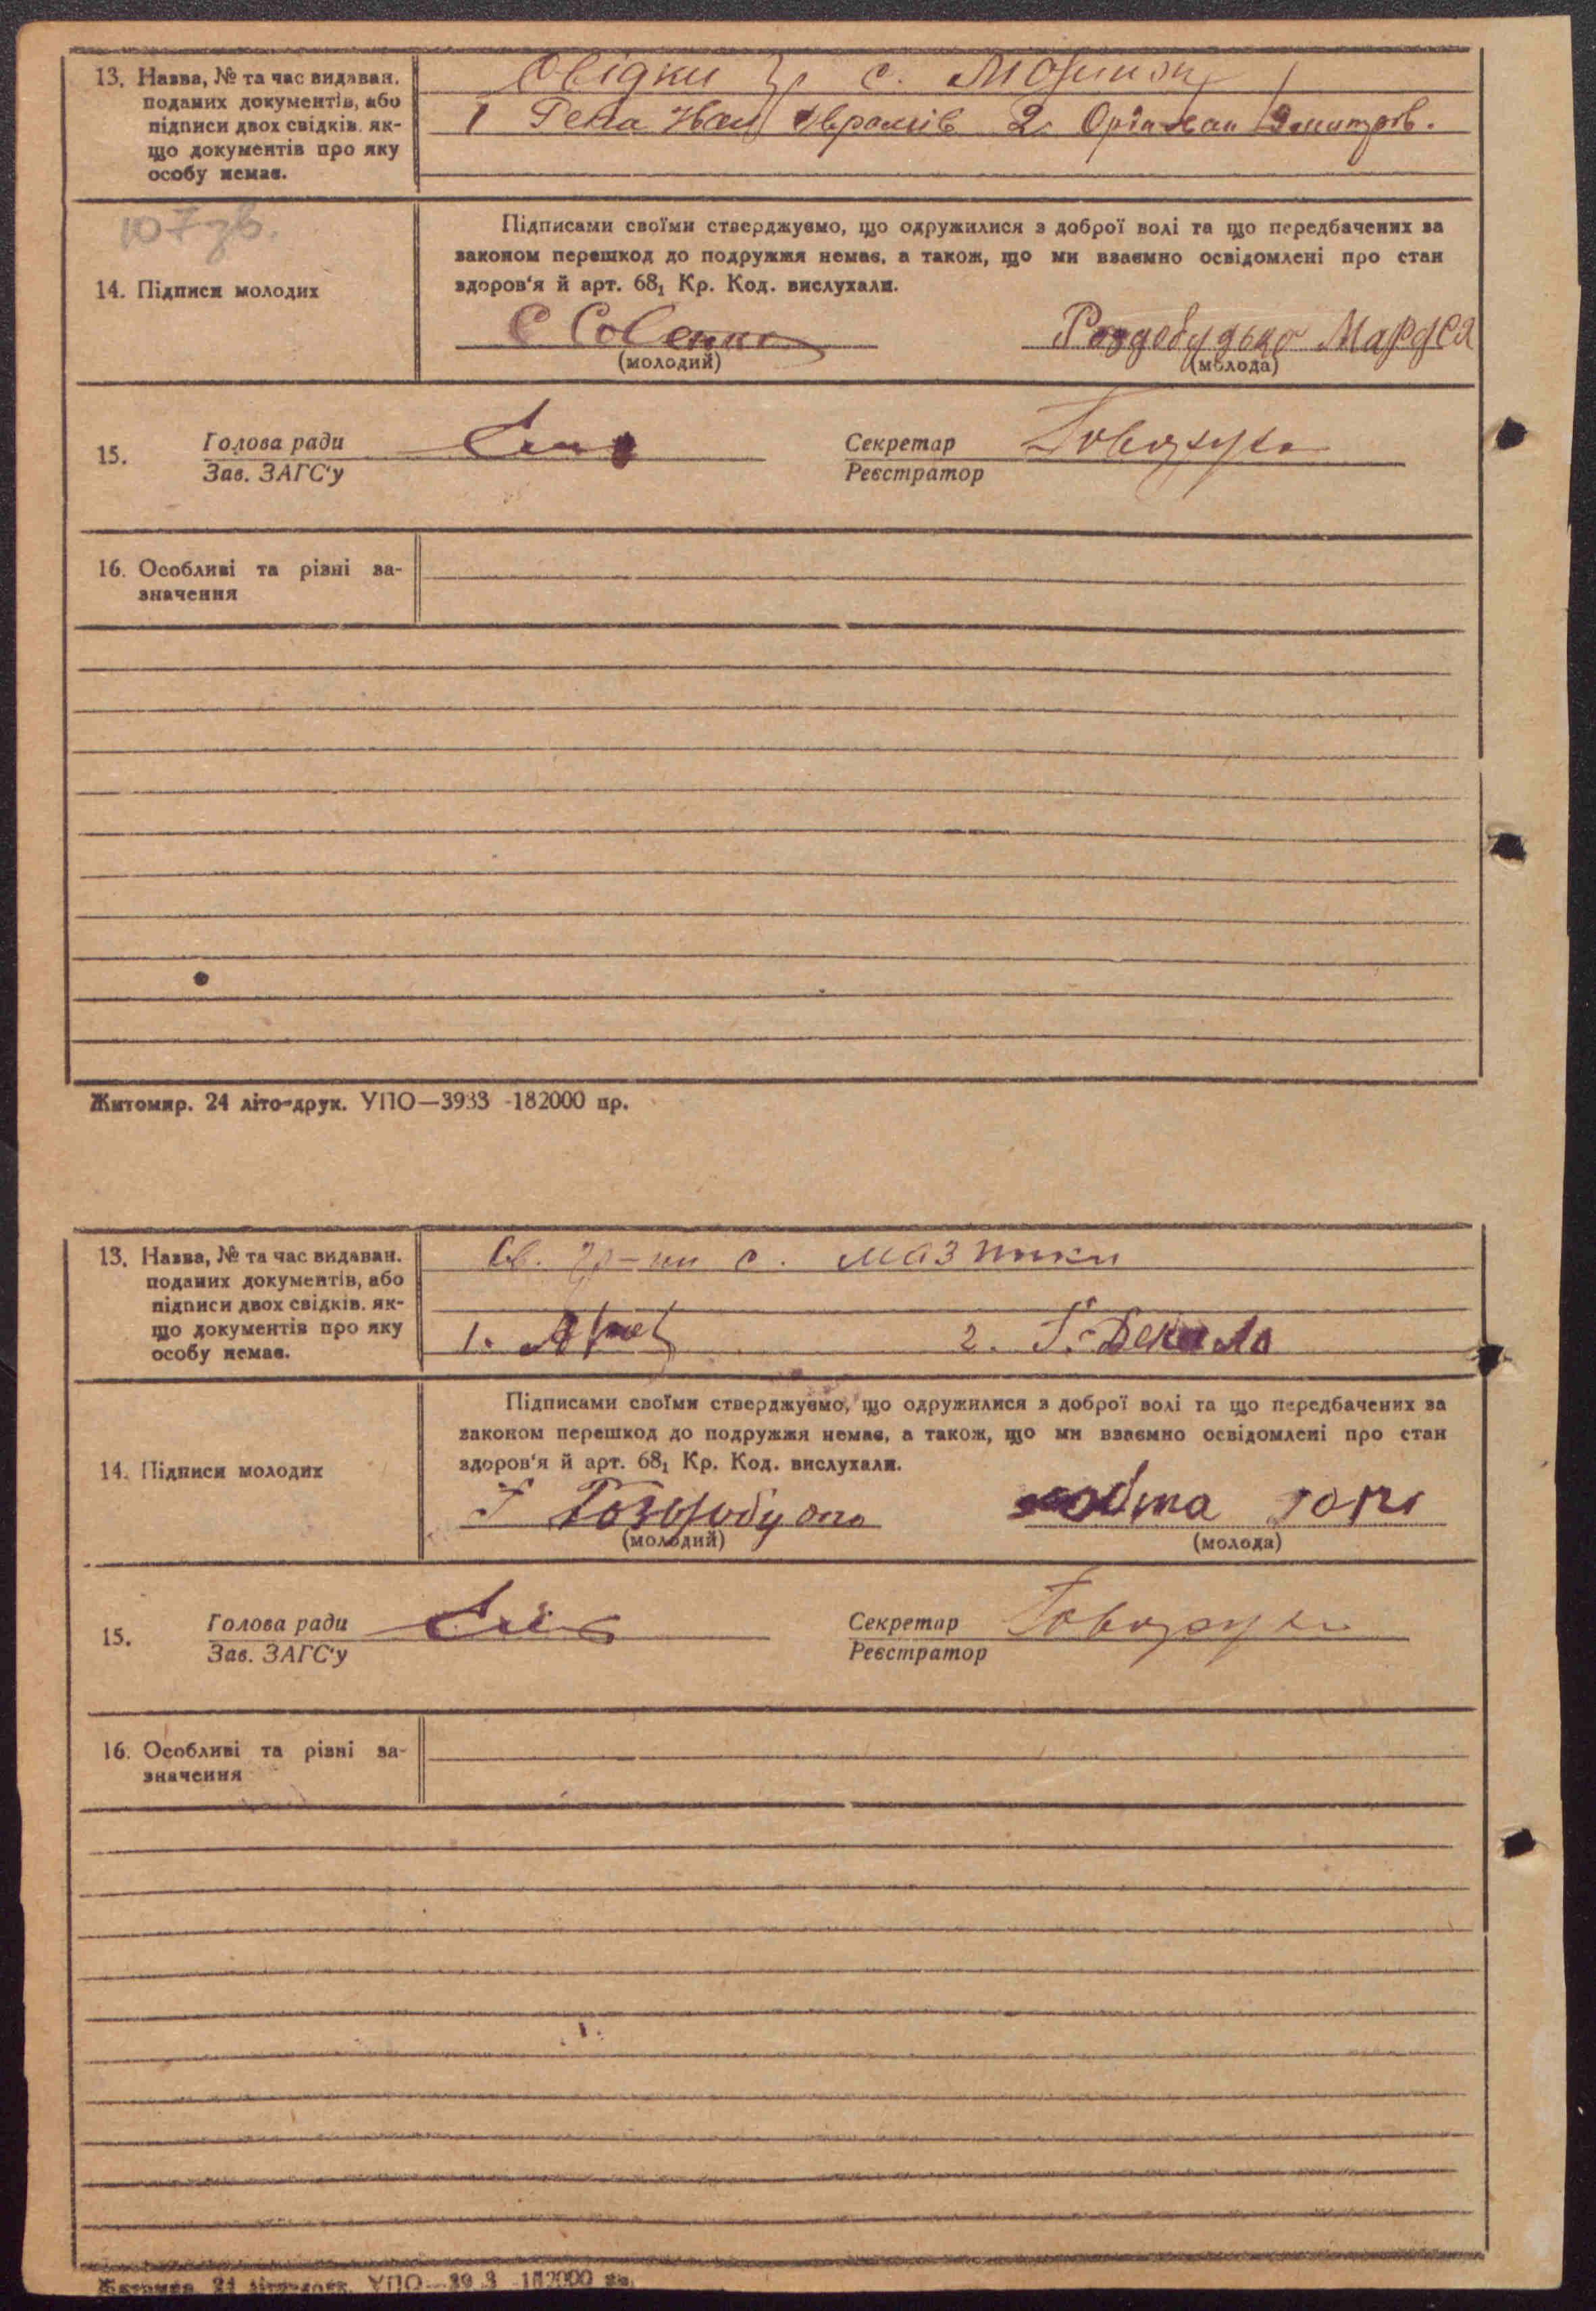 13. Назва, № та час видаван.
поданих документів, або
підписи двох свідків. як-
що документів про яку
особу немає.
Свідки гр с.
1 Рена Іван 2.
107 зв.
14. Підписи молодих
Підписами своїми стверджуємо, що одружилися з доброї волі та що передбачених за
законом перешкод до подружжя немає, а також, що ми взаємно освідомлені про стан
здоров'я й арт. 68₁ Кр. Код. вислухали.
С Совенко
Роздобудько Марфея
(молодий) (молода)
15. Голова ради
Зав. ЗАГС'у
Секретар
Реєстратор
16. Особливі та різні за-
значення
Житомир. 24 літо-друк. УПО—3933 -182000 пр.
13. Назва, № та час видаван.
поданих документів, або
підписи двох свідків. як-
що документів про яку
особу немає.
Св. гр-ни с. мазинки
1. 2. Г. Декало
14. Підписи молодих
Підписами своїми стверджуємо, що одружилися з доброї волі та що передбачених за
законом перешкод до подружжя немає, а також, що ми взаємно освідомлені про стан
здоров'я й арт. 68₁ Кр. Код. вислухали.
(молодий) (молода)
15. Голова ради
Зав. ЗАГС'у
Секретар
Реєстратор
16. Особливі та різні за-
значення
УПО—39 3 -182000